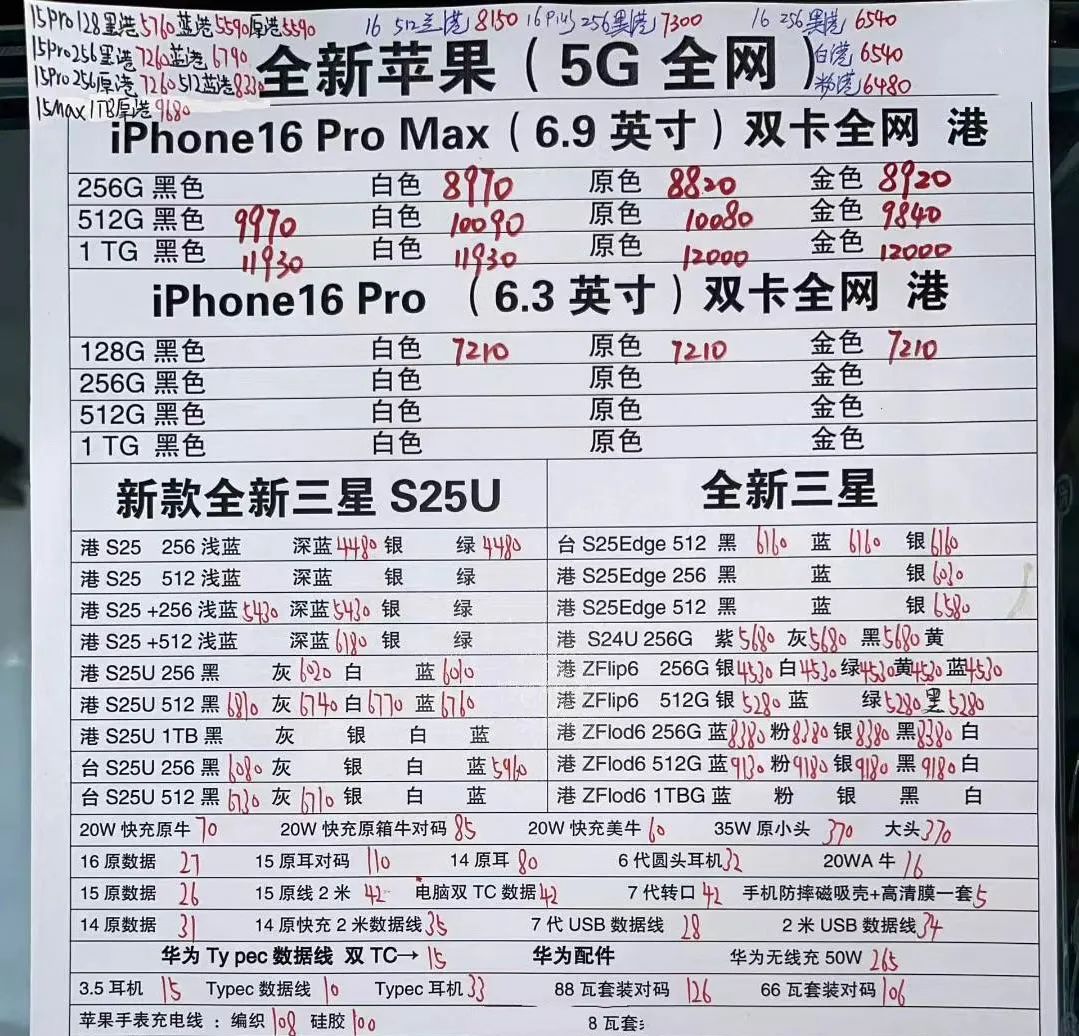 15Pro 128黑港5760蓝港5590原港5590 16 512兰港8150 16Plus 256黑港7300 16 256黑港6540
15Pro256黑港7260蓝港6790 白港6540
15Pro256原港7260 512蓝港8330 粉港6480
15Max 1TB原港9680
全新苹果（5G 全网）
iPhone16 Pro Max（6.9 英寸）双卡全网 港
256G 黑色 白色 8970 原色 8820 金色 8920
512G 黑色 9970 白色 10090 原色 10080 金色 9840
1 TG 黑色 11930 白色 11930 原色 12000 金色 12000
iPhone16 Pro （6.3 英寸）双卡全网 港
128G 黑色 白色 7210 原色 7210 金色 7210
256G 黑色 白色 原色 金色
512G 黑色 白色 原色 金色
1 TG 黑色 白色 原色 金色
新款全新三星 S25U
港 S25 256 浅蓝 深蓝4480 银 绿4480
港 S25 512 浅蓝 深蓝 银 绿
港 S25 +256 浅蓝5430 深蓝5430 银 绿
港 S25 +512 浅蓝 深蓝6180 银 绿
港 S25U 256 黑 灰6020 白 蓝6010
港 S25U 512 黑6810 灰6740 白6770 蓝6760
港 S25U 1TB 黑 灰 银 白 蓝
台 S25U 256 黑6080 灰 银 白 蓝5960
台 S25U 512 黑6730 灰6710 银 白 蓝
全新三星
台 S25Edge 512 黑 6160 蓝 6160 银6160
港 S25Edge 256 黑 蓝 银6030
港 S25Edge 512 黑 蓝 银6580
港 S24U 256G 紫5680 灰5680 黑5680 黄
港 ZFlip6 256G 银4530 白4530 绿4530 黄4530 蓝4530
港 ZFlip6 512G 银5280 蓝 绿5280 黑5280
港 ZFlod6 256G 蓝8380 粉8380 银8380 黑8380 白
港 ZFlod6 512G 蓝9130 粉9180 银9180 黑9180 白
港 ZFlod6 1TBG 蓝 粉 银 黑 白
20W 快充原牛 70 20W 快充原箱牛对码 85 20W 快充美牛 60 35W 原小头 370 大头 370
16 原数据 27 15 原耳对码 110 14 原耳 80 6 代圆头耳机 32 20WA 牛 16
15 原数据 26 15 原线 2 米 42 电脑双 TC 数据 42 7 代转口 42 手机防摔磁吸壳+高清膜一套 5
14 原数据 31 14 原快充 2 米数据线 35 7 代 USB 数据线 28 2 米 USB 数据线 34
华为 Ty pec 数据线 双 TC→ 15 华为配件 华为无线充 50W 265
3.5 耳机 15 Typec 数据线 10 Typec 耳机 33 88 瓦套装对码 126 66 瓦套装对码 106
苹果手表充电线 ：编织 108 硅胶 100 8 瓦套